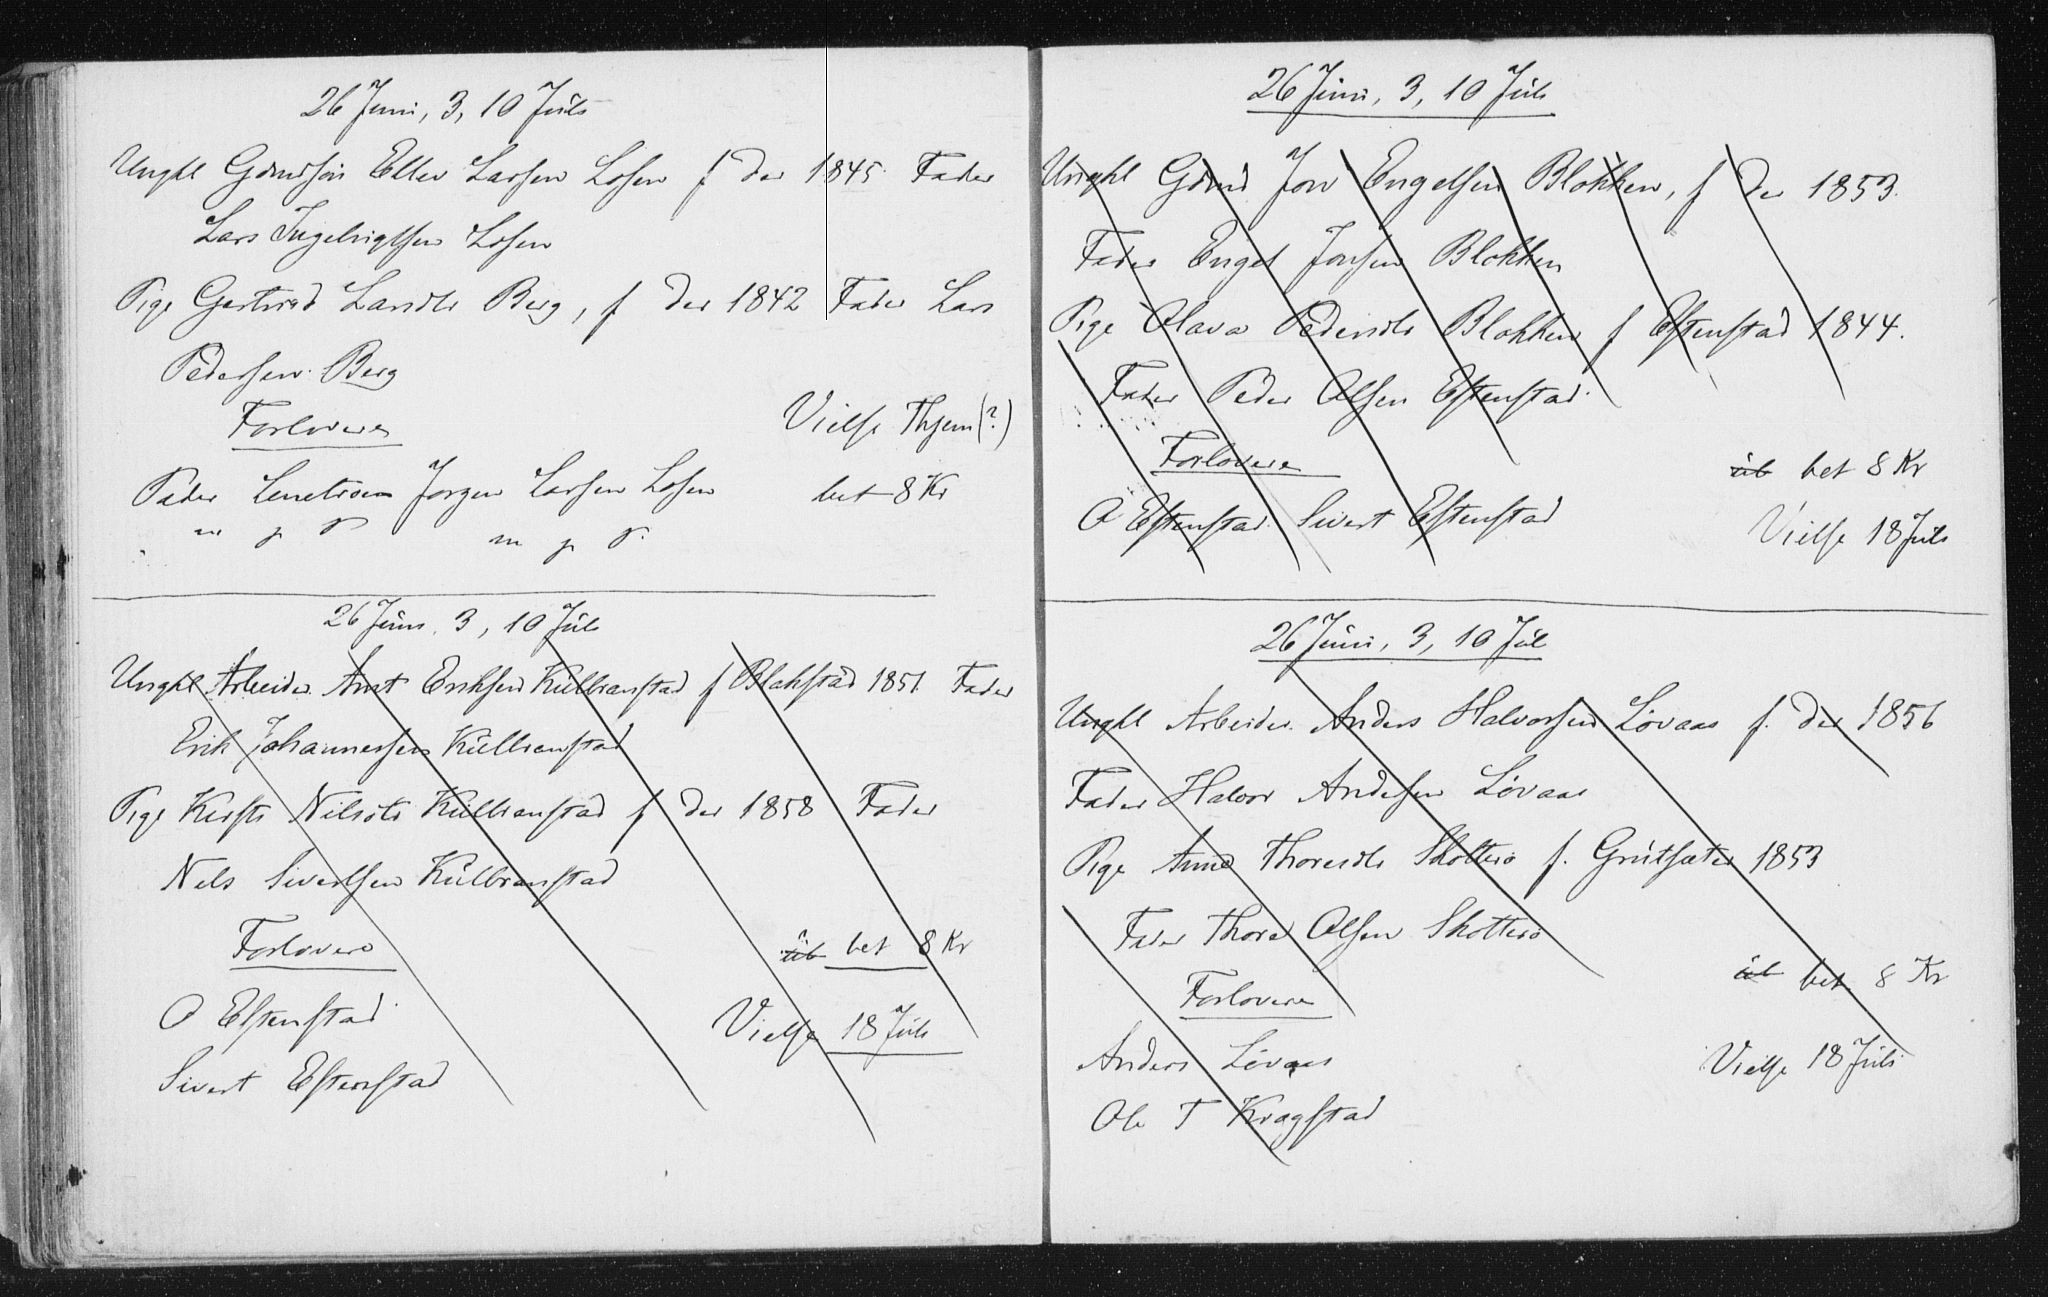 26 Juni, 3, 10 Juli
Ungkl Gdmdsøn Ellev Larsen Losen f der 1845. Fader
Lars Ingebrigtsen Losen
Pige Gertrud Larsdtr Berg, f der 1842 Fader Lars
Pedersen Berg
Forlovere
Vielse Thjem (?)
Peder Jørgen Larsen Losen
bet 8 Kr
m p P m p P.
26 Juni, 3, 10 Juli
Ungkl Arbeider Arnt Eriksen Kulbranstad f Blakstad 1851. Fader
Erik Johannesen Kulbranstad
Pige Kirsti Nilsdtr Kulbranstad f der 1858 Fader
Nels Sivertsen Kulbranstad
Forlovere
ub bet 8 Kr
O Estenstad
Vielse 18 Juli
Sivert Estenstad
26 Juni, 3, 10 Juli
Ungkl Gdmd Jon Engelsen Blokken, f der 1853.
Fader Engel Jonsen Blokken
Pige Olava Pedersdtr Blokken f Estenstad 1844.
Fader Peder Olsen Estenstad.
Forlovere
ub bet 8 Kr
O Estenstad Sivert Estenstad
Vielse 18 Juli
26 Juni, 3, 10 Jul
Ungkl Arbeider Anders Halvorsen Løvaas f. der 1856
Fader Halvor Andersen Løvaas
Pige Anne Thoresdtr Skotterø f. Grutsæter 1853
Fader Thore Olsen Skotterø
Forlovere
ub bet 8 Kr
Anders Løvaas
Vielse 18 Juli
Ole T Kragstad